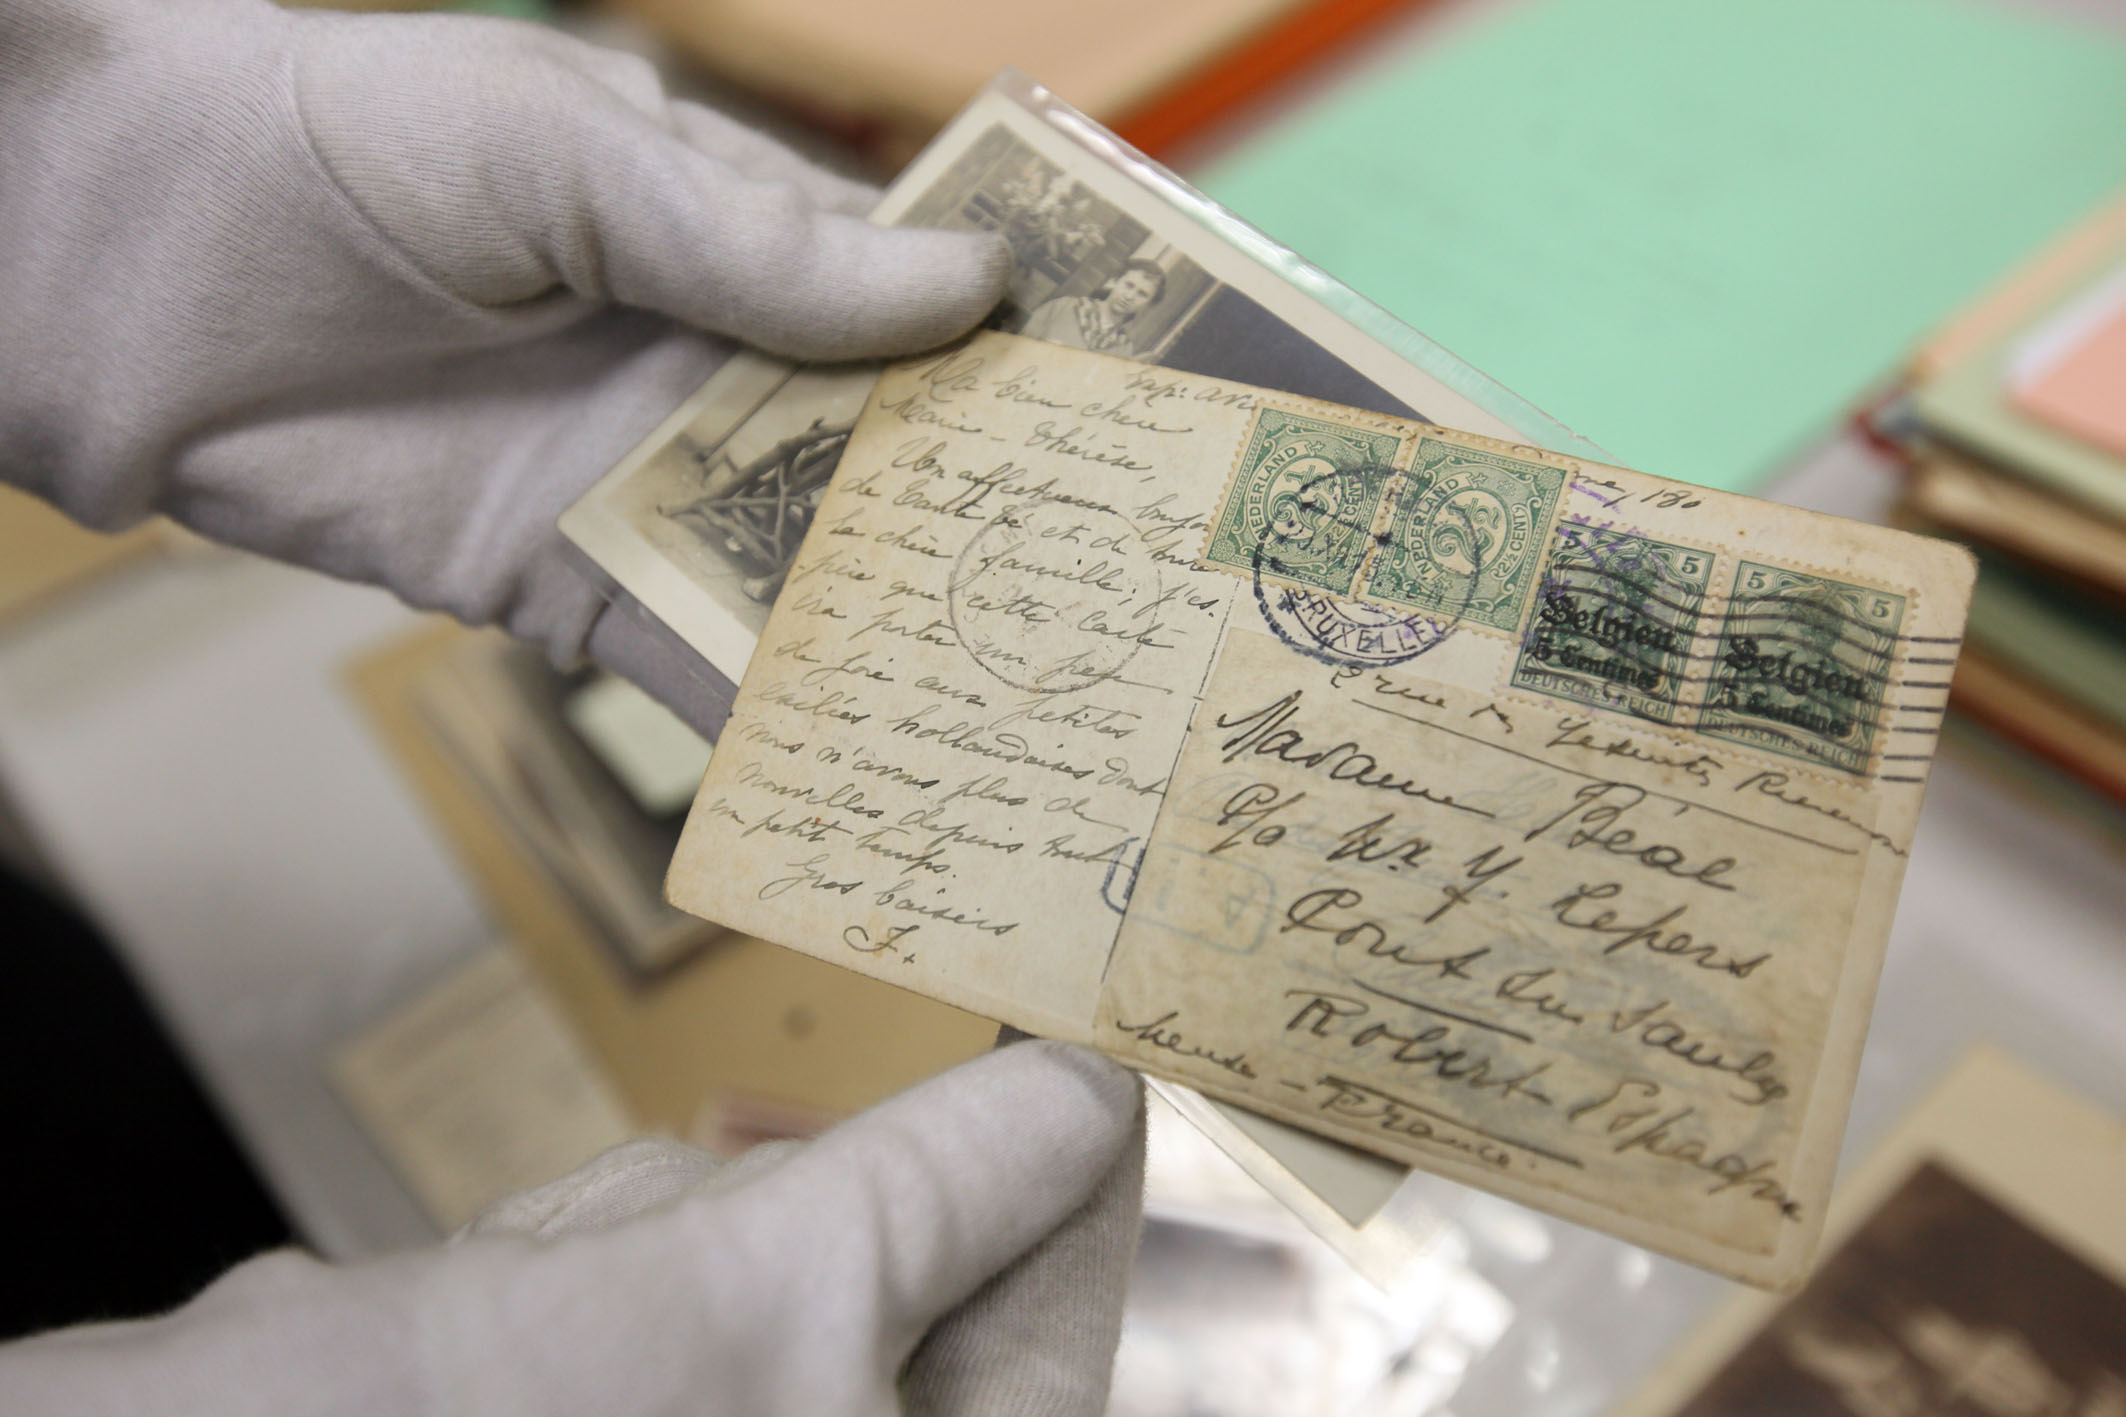 Ma bien chère
Marie-Thérèse,
Un affectueux bonjour
de Tante Bé et de toute
la chère famille; j'es-
père que cette carte
ira porter un peu
de joie aux petites
exilées hollandaises dont
nous n'avons plus de
nouvelles depuis tout
un petit temps.
Gros baisers
F.
NEDERLAND 2½ CENT
NEDERLAND 2½ (2½ CENT)
BRUXELLES
5 5
Belgien
5 Centimes
DEUTSCHES REICH
5 5
Belgien
5 Centimes
DEUTSCHES REICH
180
Madame Béal
c/o Mr Y. Lepers
Pont sur Saulx
Robert Espagne
Meuse - France.